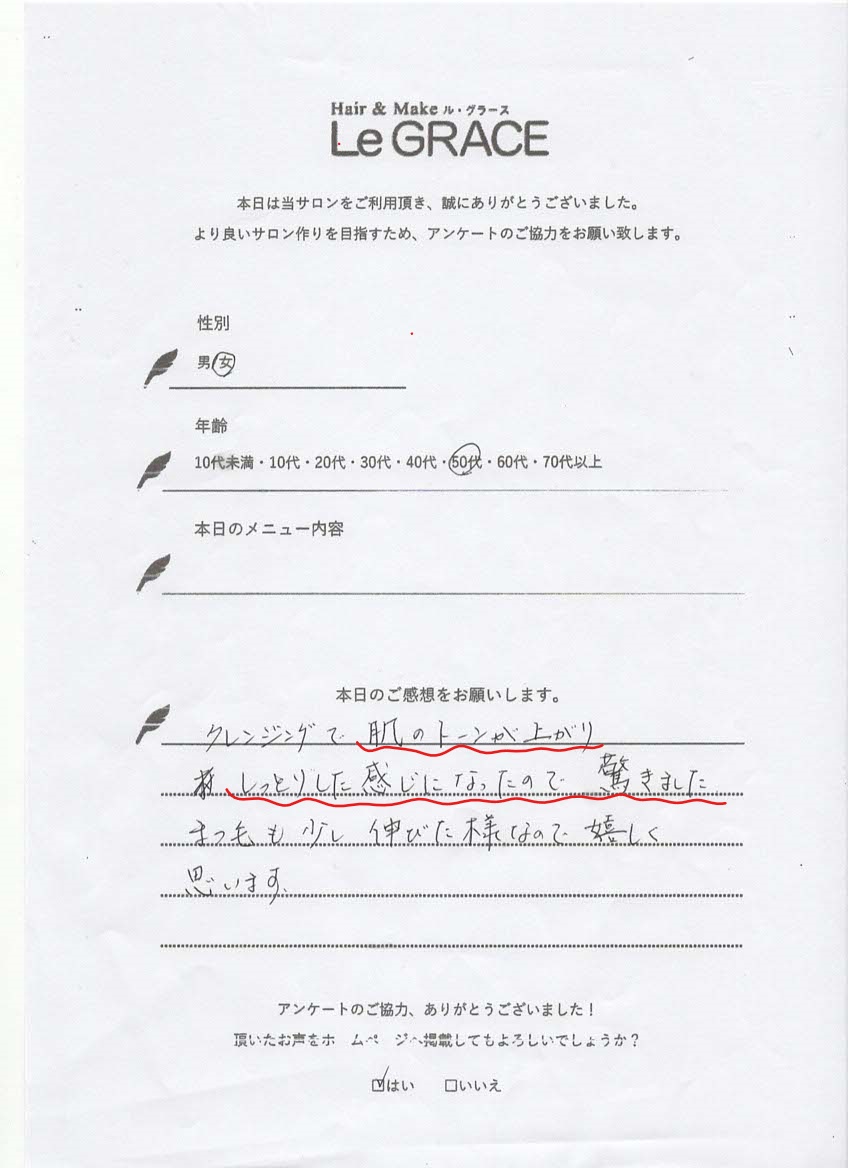 Hair & Make ル・グラース
Le GRACE
本日は当サロンをご利用頂き、誠にありがとうございました。
より良いサロン作りを目指すため、アンケートのご協力をお願い致します。
性別
男 女
年齢
10代未満・10代・20代・30代・40代・50代・60代・70代以上
本日のメニュー内容
本日のご感想をお願いします。
クレンジングで 肌のトーンが上がり
しっとりした感じになったので 驚きました
まつ毛も少し伸びた様なので嬉しく
思います。
アンケートのご協力、ありがとうございました!
頂いたお声をホームページへ掲載してもよろしいでしょうか?
☑はい □いいえ